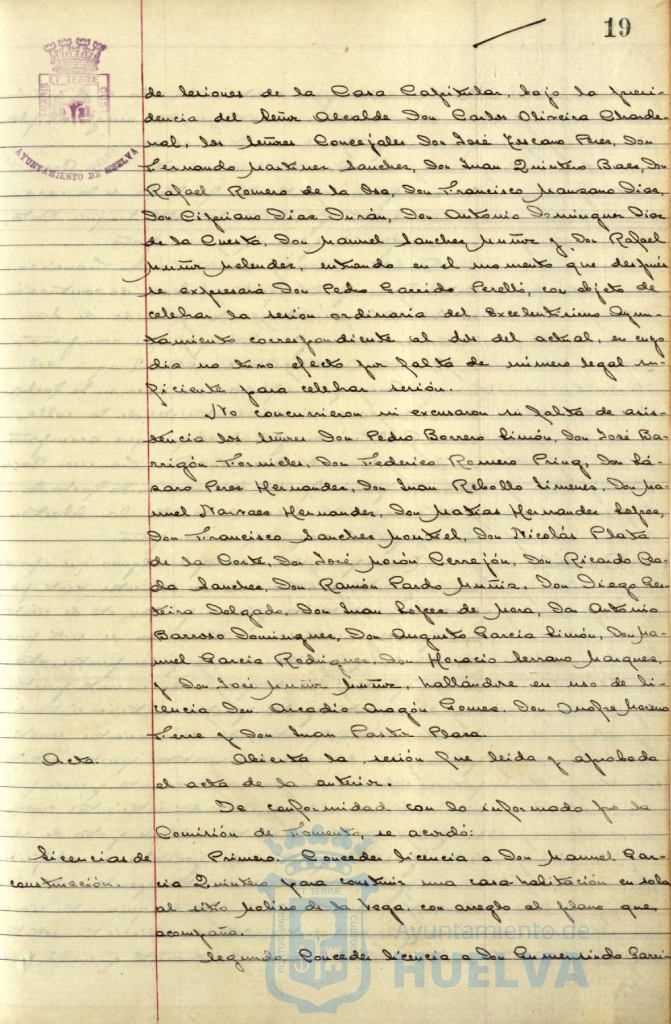 19
PORTUS MARIS ET TERRÆ CUSTODIA
AYUNTAMIENTO DE HUELVA
de sesiones de la Casa Capitular, bajo la presi-
dencia del Señor Alcalde Don Carlos Oliveira Charde-
nal, los señores Concejales Don José Toscano Peres, Don
Fernando Martines Sanches, Don Juan Quintero Baes, Don
Rafael Romero de la Osa, Don Francisco Mansano Dias,
Don Cipriano Dias Durán, Don Antonio Domingues Dias
de la Cuesta, Don Manuel Sanches Muños y Don Rafael
Muños Melendes, entrando en el momento que después
se expresará Don Pedro Garrido Perelló, con objeto de
celebrar la sesión ordinaria del Excelentísimo Ayun-
tamiento correspondiente al dos del actual, en cuyo
dia no tuvo efecto por falta de número legal su-
ficiente para celebrar sesión.
No concurrieron ni excusaron su falta de asis-
tencia los señores Don Pedro Borrero Limón, Don José Ba-
rrigón Fornieles, Don Federico Romero Pring, Don Lá-
saro Peres Hernandes, Don Juan Rebollo Jimenes, Don Ma-
nuel Narvaes Hernandes, Don Matías Hernandes Lopes,
Don Francisco Sanches Montiel, Don Nicolás Plata
de la Corte, Don José Morón Cerrejón, Don Ricardo
Sanches, Don Ramón Pardo Muñis, Don Diego
Delgado, Don Juan Lopes de Mora, Don Antonio
Barroso Domingues, Don Augusto García Limón, Don Ma-
nuel García Rodrigues, Don Horacio Serrano Marques,
y Don José Muños Muños, hallándose en uso de li-
cencia Don Arcadio Aragón Gomes, Don Onofre Moreno
Ferre y Don Juan Pastor Plasa.
Acta.
Abierta la sesión fue leida y aprobada
el acta de la anterior.
De conformidad con lo informado por la
Comisión de Fomento, se acordó:
Licencias de
construcción.
Primero. Conceder licencia a Don Manuel Gar-
cia Quintero para construir una casa-habitación en solar
al sitio Molino de la Vega, con arreglo al plano que
acompaña.
Segundo. Conceder licencia a Don Gumersindo
Ayuntamiento de
HUELVA